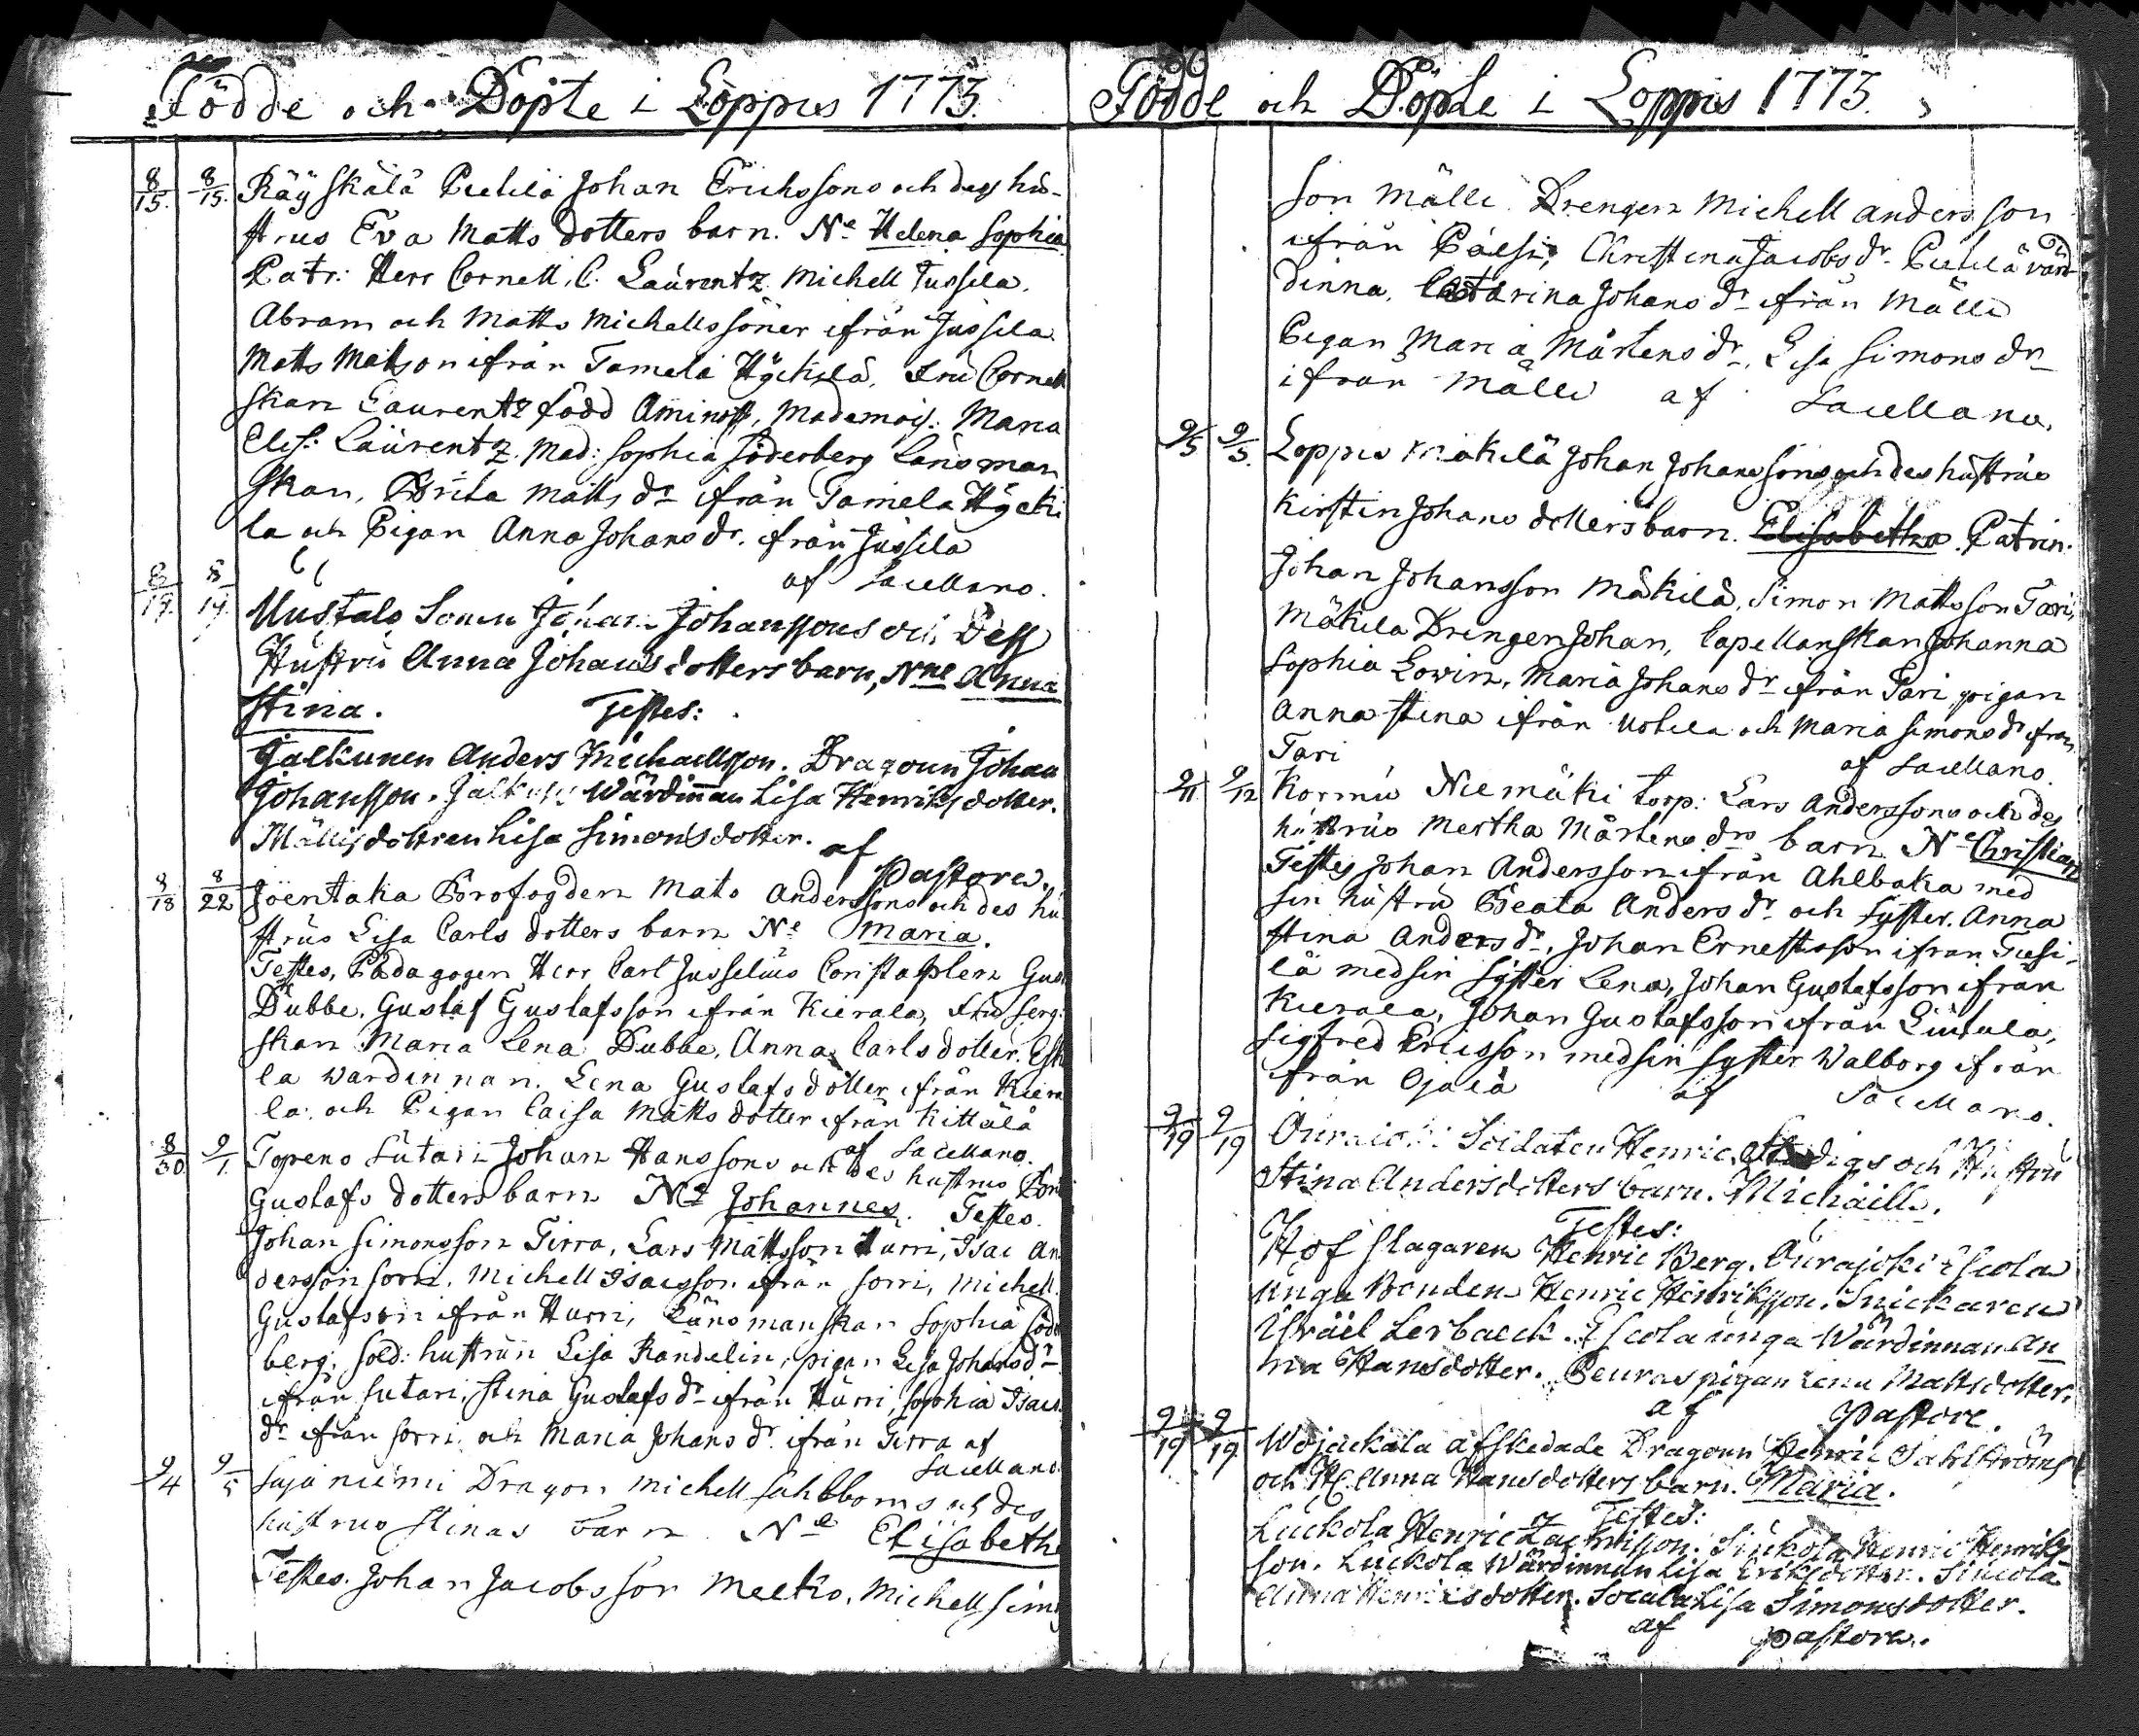 Födde och Döpte i Loppis 1773.
8/15. 8/15. Räyskälä Pietilä Johan Erichssons och dess hu-
strus Eva Matts dotters barn. Ne Helena Sophia
Patr: Herr Cornett. C. Laurentz Michell Jussila.
Abram och Matts Michellssöner ifrån Jussila
Matts Matson ifrån Tamela Hÿckilä, Fru Cornett
skan Laurentz född Aminoff, Mademois. Maria
Elis: Laurentz. Mad: Sophia Söderberg Länsman
skan, Brita Matts dr ifrån Tamela Hÿcki
la och Pigan Anna Johans dr. ifrån Jussila
af Sacellano.
8/17. 8/19. Mustals Sonen Johan Johanssons och Dess
Hustru Anna Johans dotters barn, Nne Anna
Stina. Testes:
Jalkunen Anders Michaellsson. Dragoun Johan
Johansson. Wärdinnan Lisa Henriksdotter.
Mällis dottren Lisa Simonsdotter. af
Pastore.
8/18 8/22 Joentaka Brofogden Mats Anderssons och des hu
strus Lisa Carls dotters barn Ne Maria.
Testes, Pædagogen Herr Carl Jusselius Constapelen Gust
Dubbe, Gustaf Gustafsson ifrån Kierala, Fru Serg:
skan Maria Lena Dubbe, Anna Carls dotter. Esk
la wärdinnan. Lena Gustafs dotter ifrån Kiera
la. och Pigan Caisa Matts dotter ifrån Kittälä
af Sacellano.
8/30 9/1. Topeno Sutari Johan Hanssons och des hustrus
Gustafs dotters barn Ne Johannes. Testes.
Johan Simonsson Tirra, Lars Mattsson Hurri, Isac An
dersson Sorri. Michell Isacsson ifrån Sorri, Michell
Gustafson ifrån Hurri, Länsmanskan Sophia Söder
berg, Sold: hustrun Lisa Randelin, pigan Lisa Johans dr
ifrån Sutari, Stina Gustafs dr ifrån Hurri, Sophia Isacs
dr ifrån Sorri, och Maria Johans dr ifrån Tirra af
Sacellano
9/4 9/5 Sajaniemi Dragon Michell Sahlboms och des
hustrus Stinas barn Ne Elisabetha
Testes. Johan Jacobsson Melko, Michell Simo
Födde och Döpte i Loppis 1773.
son Mälli. Drengen Michell andersson
ifrån Pälsi, Christina Jacobs dr. Pietilä värd
dinna, Catarina Johans dr ifrån Mälli
Pigan Maria Mårtens dr, Lisa Simons dr
ifrån Mälli af Sacellano.
9/5 9/5. Loppis Mäkilä Johan Johanssons och des hustrus
Kirstin Johans dotters barn. Elisabetha. Patrin:
Johan Johansson Mäkilä, Simon Mattsson Tari,
Mäkila Drengen Johan, Capellanskan Johanna
Sophia Lowin, Maria Johans dr ifrån Tari, pigan
Anna Stina ifrån Uotila och Maria Simons dr ifrån
Tari af Sacellano.
9/11 9/12 Kormu Niemäki torp: Lars Anderssons och des
hustrus Mertha Mårtens drs barn Ne Christian
Testes Johan Andersson ifrån Ahlbaka med
sin hustru Beata Anders dr och Syster Anna
Stina Anders dr, Johan Ernestsson ifrån
lä med sin Syster Lena, Johan Gustafsson ifrån
Kierala, Johan Gustafsson ifrån Liutula,
Sigfred Ericsson med sin Syster Walborg ifrån
från Ojala af Sacellano.
9/19 9/19 Soldaten Henric och Hustru
Stina Andersdotters barn. Michaill.
Testes:
Hofslagaren Henric Berg. Ourajoki Escola
unga Bonden Henric Henriksson. Snickaren
Israël Lerbaeck. Escola unga Wärdinnan An
na Hansdotter. Peuras pigan Lena Mattsdotter.
af Pastore.
9/19 9/19. Wojackala afskedade Dragoun Henric Sahlströms
och H. Anna Hansdotters barn. Maria.
Testes:
Luckola Henric Zachrisson. Henric Henriks
son. Luckola Wärdinnan Lisa Eriksdotter.
Anna dotter. Lisa Simonsdotter.
af pastore.